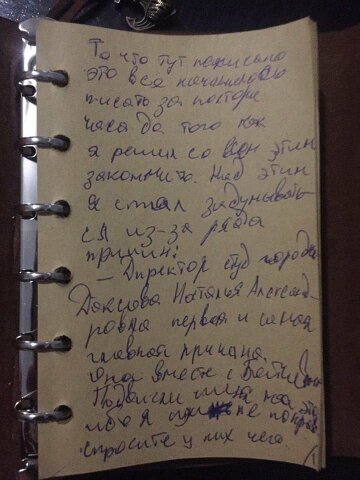 То что тут написано
это всё начиналось
писать за полтора
часа до того как
я решил со всем этим
закончить. Над этим
я стал задумывать-
ся из-за ряда
причин:
– Директор студ города
Наталья Александ-
ровна первая и самая
главная причина.
Она вместе с
на это
ибо я не понрав
спросите у них чего.